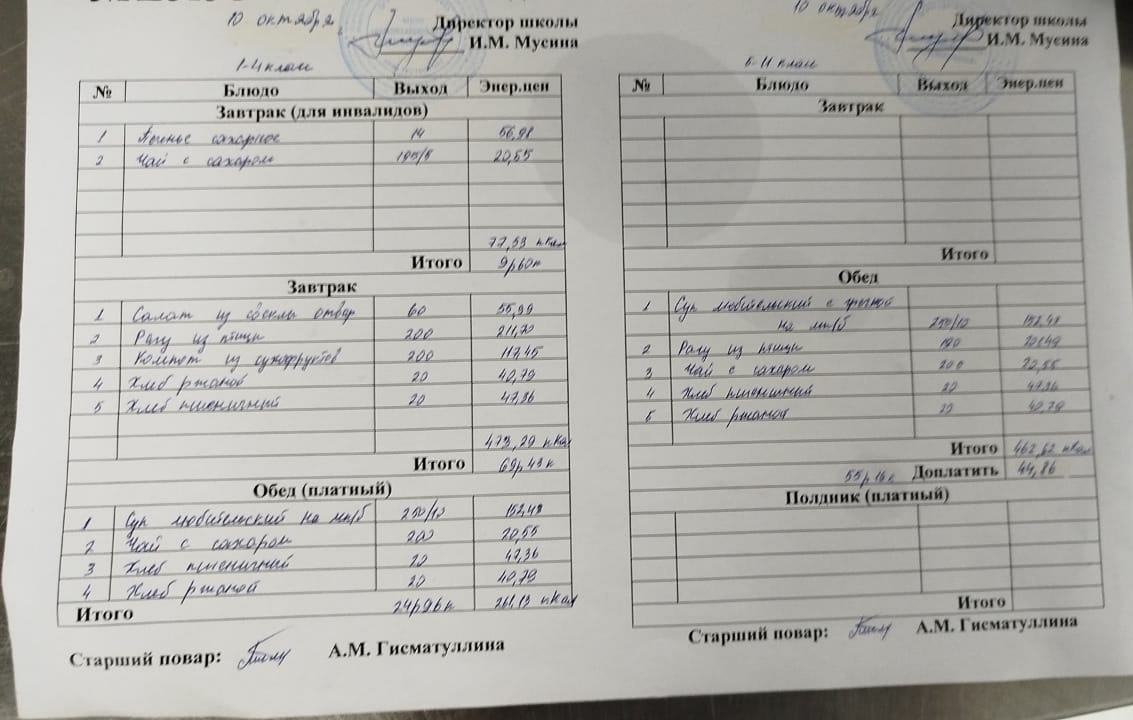 10 октября
Директор школы
И.М. Мусина
1-4 класс
№ Блюдо Выход Энер.цен
Завтрак (для инвалидов)
1 Печенье сахарное 14 56,98
2 Чай с сахаром 195/5 20,55
77,53 ккал
Итого 9р60к
Завтрак
1 Салат из свеклы отвар 60 55,99
2 Рагу из птицы 200 211,70
3 Компот из сухофруктов 200 117,45
4 Хлеб ржаной 20 40,79
5 Хлеб пшеничный 20 47,36
473,29 ккал
Итого 69р43к
Обед (платный)
1 Суп любительский на мк/б 250/10 152,48
2 Чай с сахаром 200 20,55
3 Хлеб пшеничный 20 47,36
4 Хлеб ржаной 20 40,79
Итого 24р96к 261,19 ккал
Старший повар: А.М. Гисматуллина
10 октября
Директор школы
И.М. Мусина
5-11 класс
№ Блюдо Выход Энер.цен
Завтрак
Итого
Обед
1 Суп любительский с
на мк/б 250/10 152,48
2 Рагу из птицы 180
3 Чай с сахаром 200 20,55
4 Хлеб пшеничный 20 47,36
5 Хлеб ржаной 20 40,79
Итого 462,62 ккал
55р16к Доплатить 44,86
Полдник (платный)
Итого
Старший повар: А.М. Гисматуллина